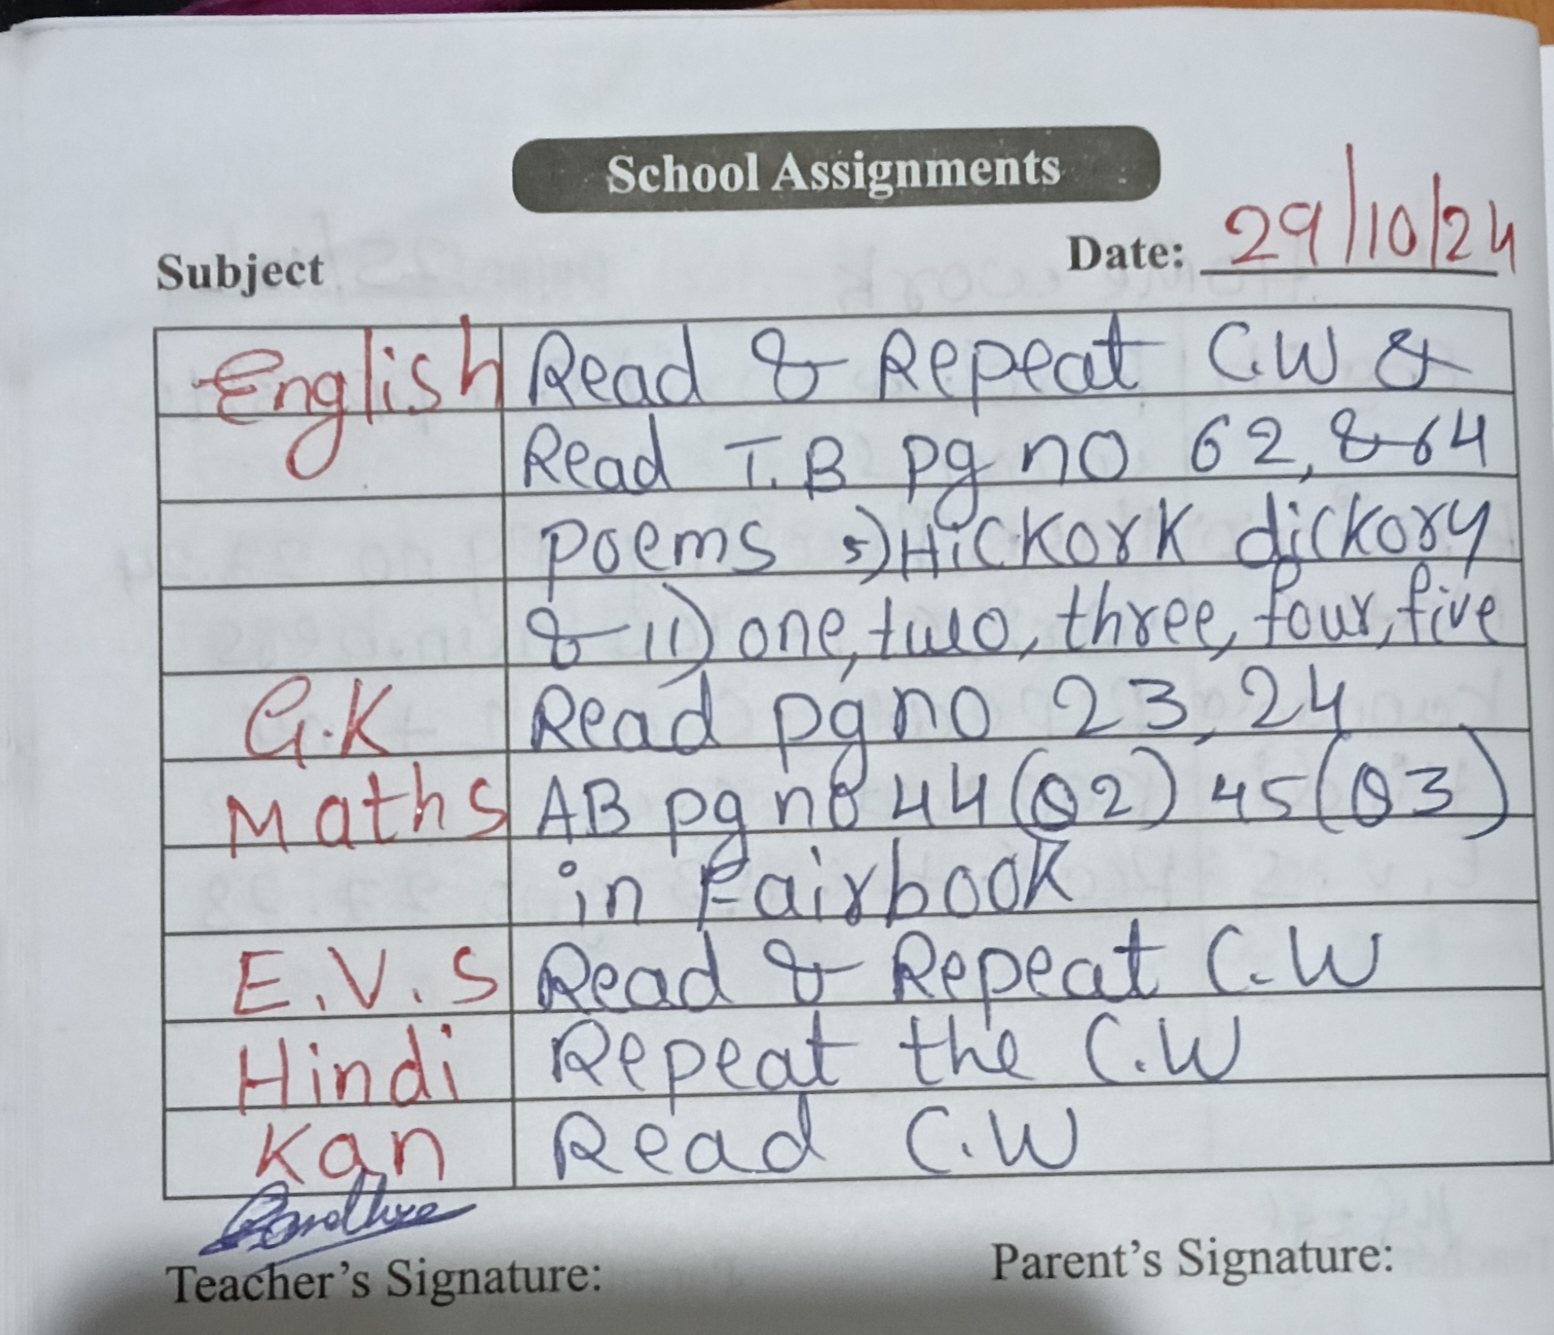 School Assignments
Subject Date: 29/10/24
English Read & Repeat C.W &
Read T.B pg no 62, & 64
Poems i) Hickork dickory
& ii) one, two, three, four, five
G.K Read pg no 23, 24
Maths AB pg no 44 (Q2) 45 (Q3)
in Fairbook
E.V.S Read & Repeat C.W
Hindi Repeat the C.W
Kan Read C.W
Teacher's Signature: Parent's Signature: